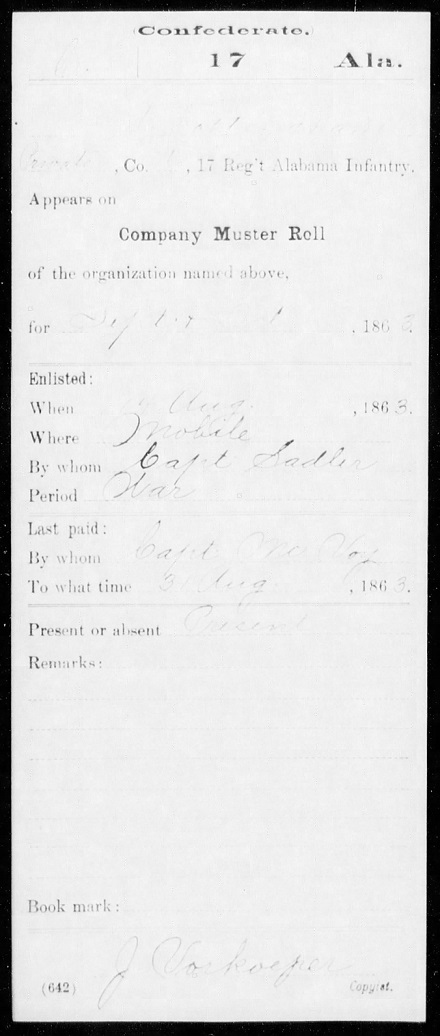 (Confederate.)
17 Ala.
Private, Co. , 17 Reg't Alabama Infantry.
Appears on
Company Muster Roll
of the organization named above,
for Sept , 1863.
Enlisted:
When Aug. , 1863.
Where Mobile
By whom Capt Sadler
Period War
Last paid:
By whom Capt
To what time 31 Aug. , 1863.
Present or absent Present
Remarks:
Book mark:
J
(642) Copyist.